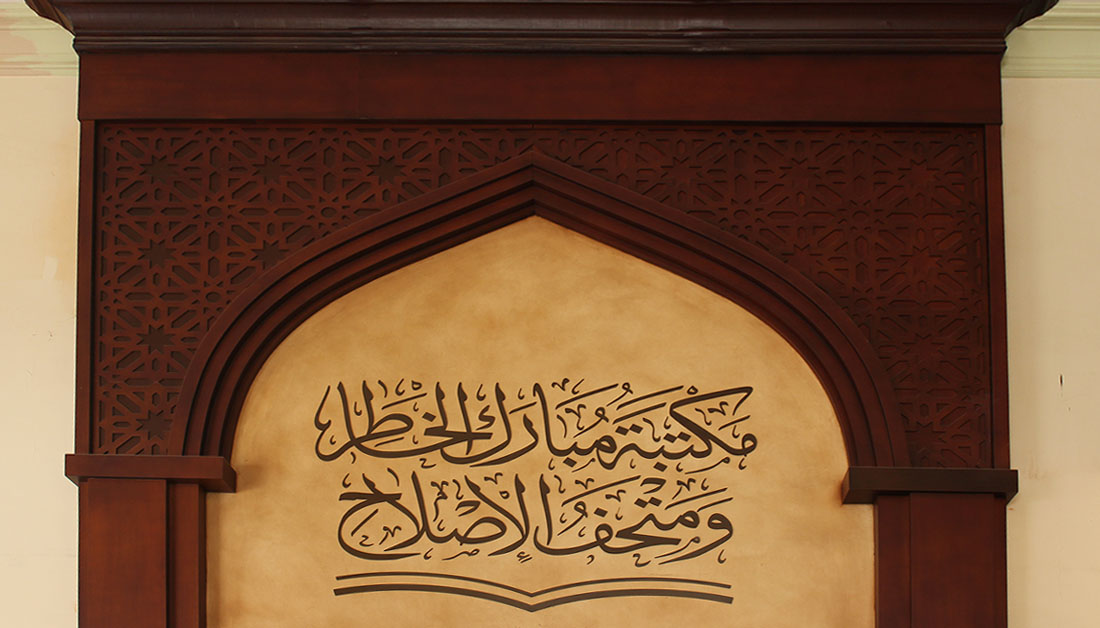 مَكْتَبَة مُبَارَك الخَاطِر
وَمَتْحَف الإِصْلَاح